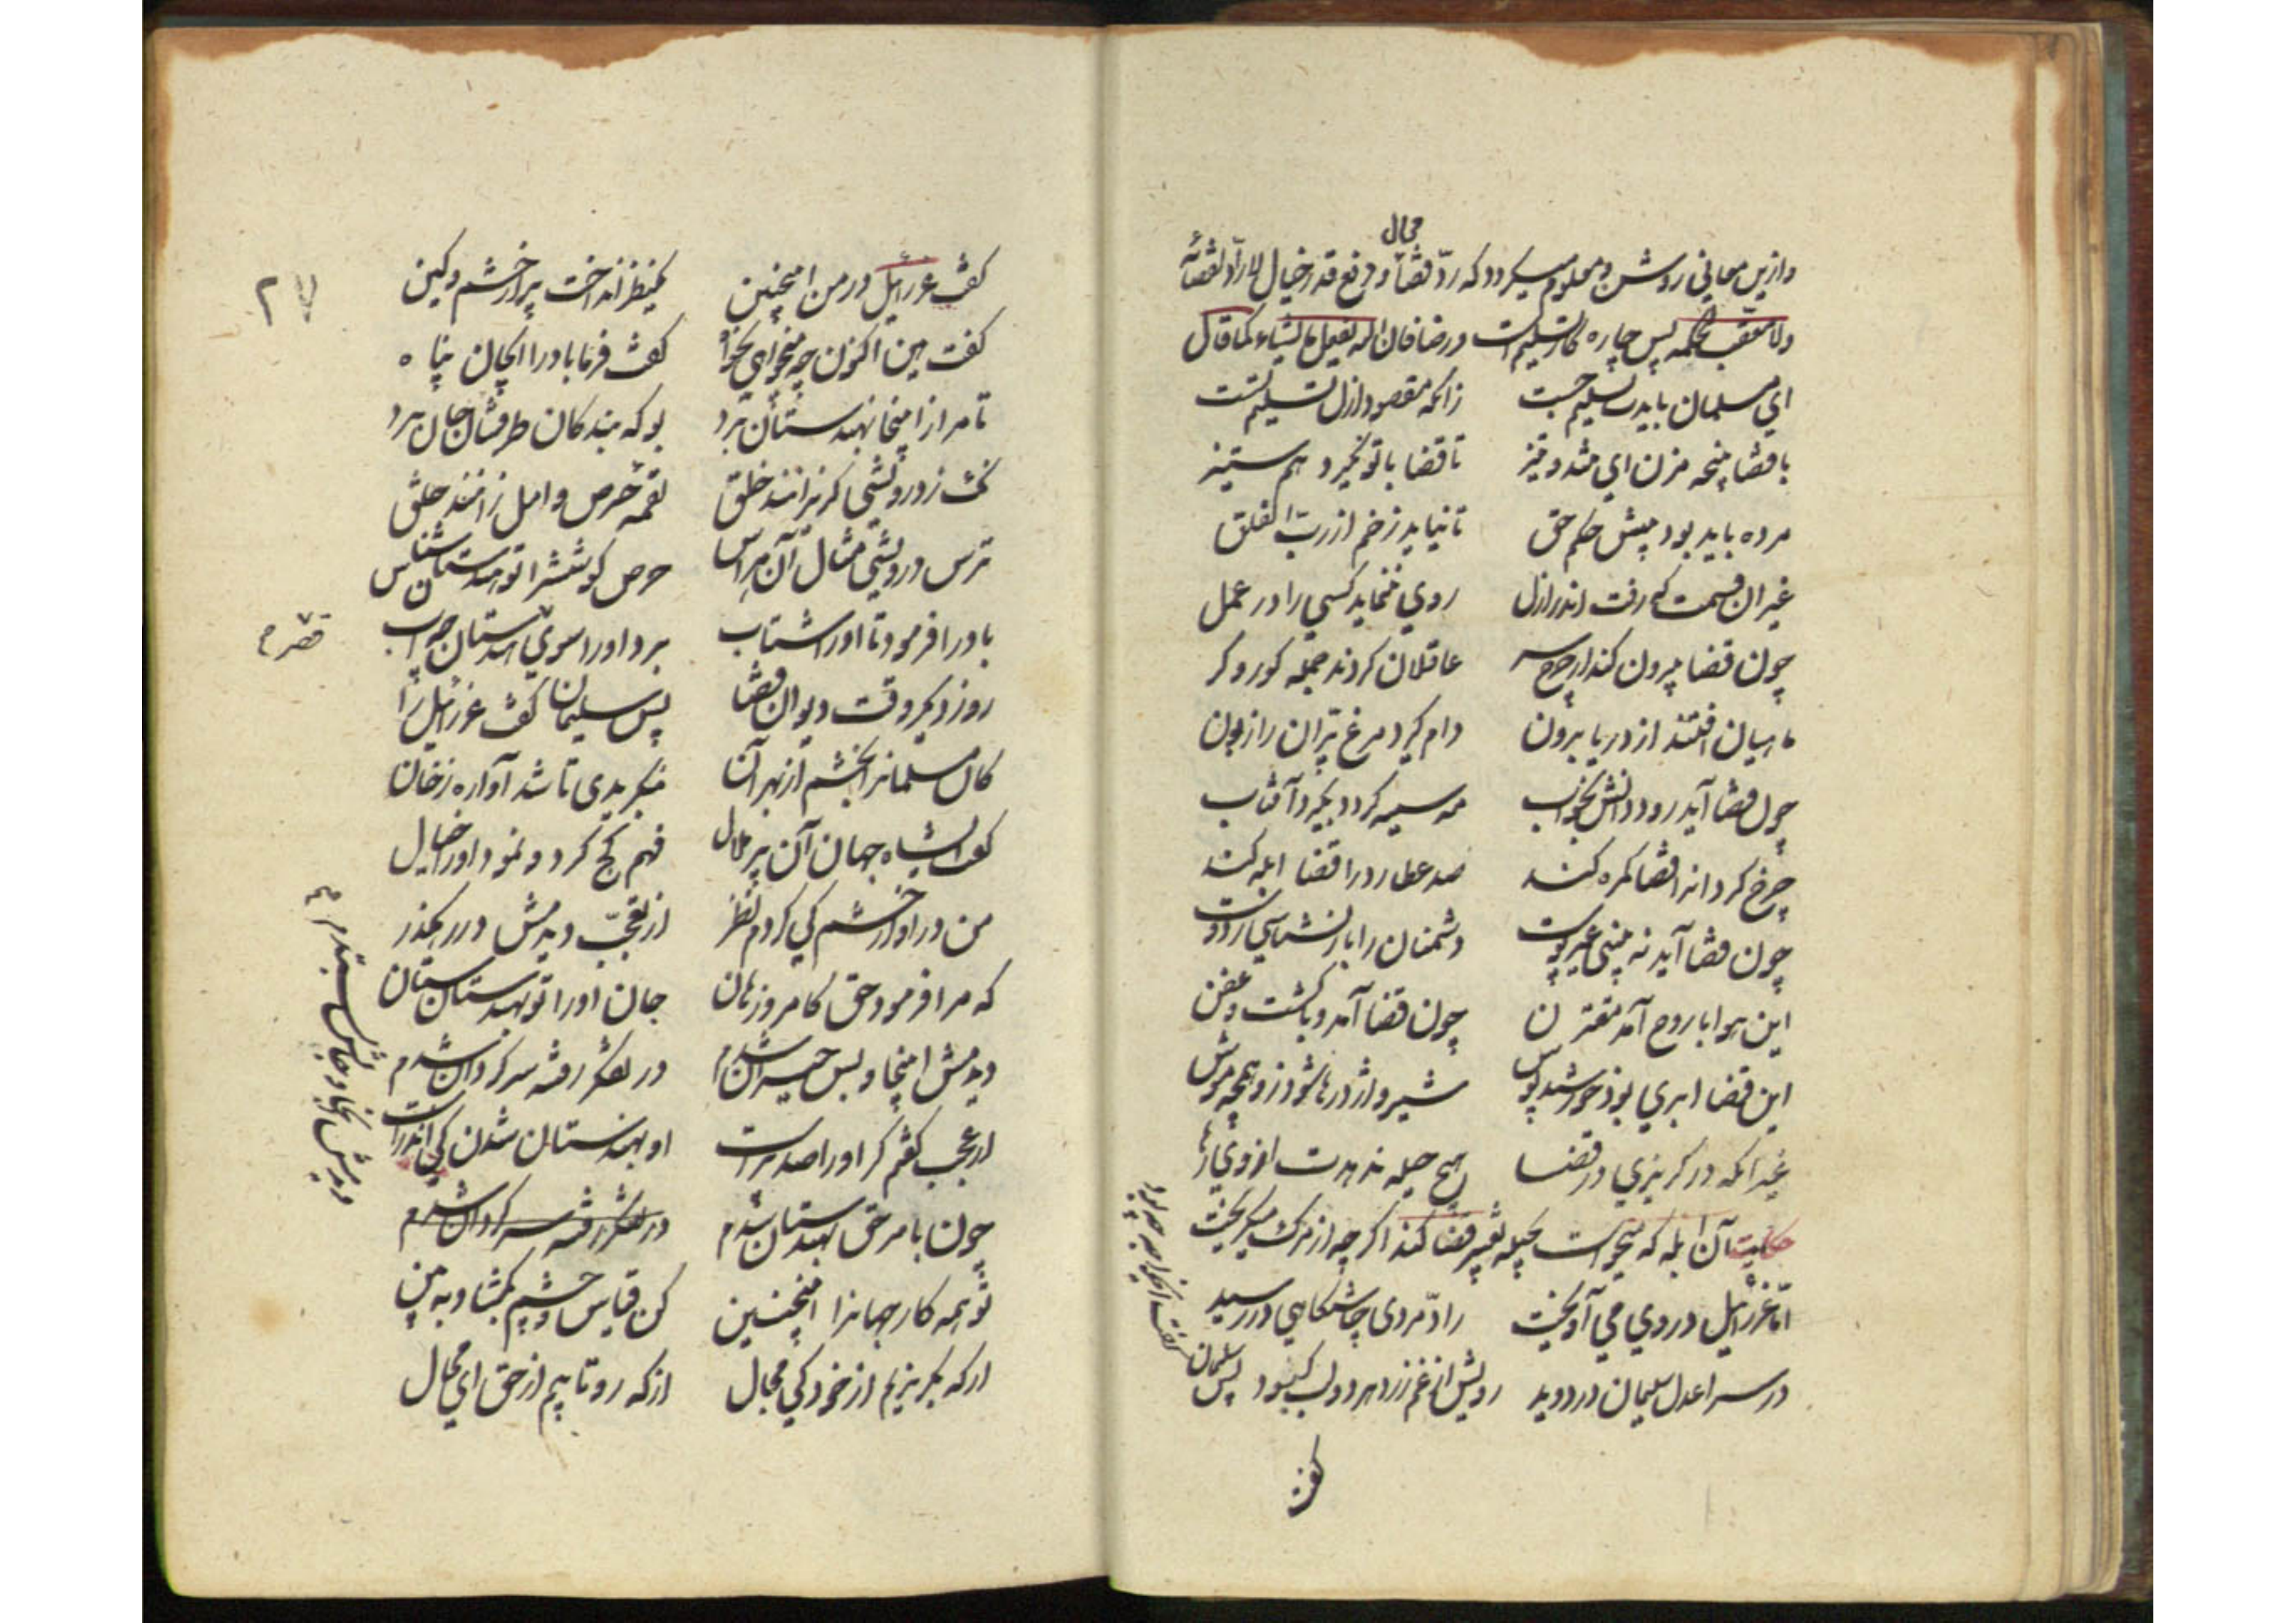 محال
وازین معانی روشن و معلوم میکردد که ردّ قضا و دفع قدر خیال لا رادّ لقضائه
ولا معقب لحکمه پس چاره کار تسلیم است و رضا فان الله یفعل ما یشاء کما قال
ای مسلمان باید تسلیم جست زانکه مقصود ازل تسلیم تست
با قضا پنجه مزن ای تند و تیز تا قضا با تو نکیرد هم ستیز
مرده باید بود پیش حکم حق تا نیاید زخم از ربّ الفلق
غیر ان قسمت که رفت اندر ازل روی ننماید کسی را در عمل
چون قضا بیرون کند از چرخ سر عاقلان کردند جمله کور و کر
ماهیان افتند از دریا برون دام کیرد مرغ پران را زبون
چون قضا آید رود دانش بخواب مه سیه کردد بکیرد آفتاب
چرخ کردانرا قضا کمره کند صد عطارد را قضا ابله کند
چون قضا آید نه بینی غیر پوست دشمنان را باز نشناسی ز دوست
این هوا با روح آمد مقترن چون قضا آمد وبا کشت و عفن
این قضا ابری بود خورشید پوش شیر و اژدرها شود زو همچو موش
غیر آنکه در کریزی در قضا هیچ حیله ندهدت از وی رها
حکایت آن ابله که میخواست بحیله تغییر قضا کند اکر چه از مرک میکریخت
امّا عزرائیل در وی می آویخت رادمردی چاشتکاهی در رسید
در سرا عدل سلیمان در دوید رویش از غم زرد و هر دو لب کبود پس سلیمان
کفت ای خواجه چه بود
کفت
۲۷
کفت عزرائیل در من اینچنین یکنظر انداخت پر از خشم و کین
کفت هین اکنون چه میخواهی بخواه کفت فرما باد را ای جان پناه
تا مرا زاینجا بهندستان برد بو که بنده کان طرف شد جان برد
نک ز درویشی کریزانند خلق لقمه حرص و امل زانند خلق
ترس درویشی مثال آن هراس حرص کوشش را تو هندستان شناس
باد را فرمود تا او را شتاب برد او را سوی هندستان بر آب
روز دیکر وقت دیوان و لقا پس سلیمان کفت عزرائیل را
کان مسلمانرا بخشم از بهر آن بنکریدی تا شد آواره ز خان
کفت ایشاه جهان آن پر ملال فهم کج کرد و نمود او را خیال
من در او از خشم کی کردم نظر از تعجّب دیدمش در رهکذر
که مرا فرمود حق کامروز هان جان او را تو بهندستان ستان
دیدمش اینجا و بس حیران شدم در تفکر رفته سرکردان شدم
از عجب کفتم کر او را صد پرست او بهندستان شدن کی اندرست
چون بامر حق بهندستان شدم در تفکر رفته سرکردان شدم
دیدمش آنجا و جانش بستدم
تو همه کار جهانرا اینچنین کن قیاس و چشم بکشا و به بین
از که بکریزیم از خود کی مجال از که رو تابیم از حق ای محال